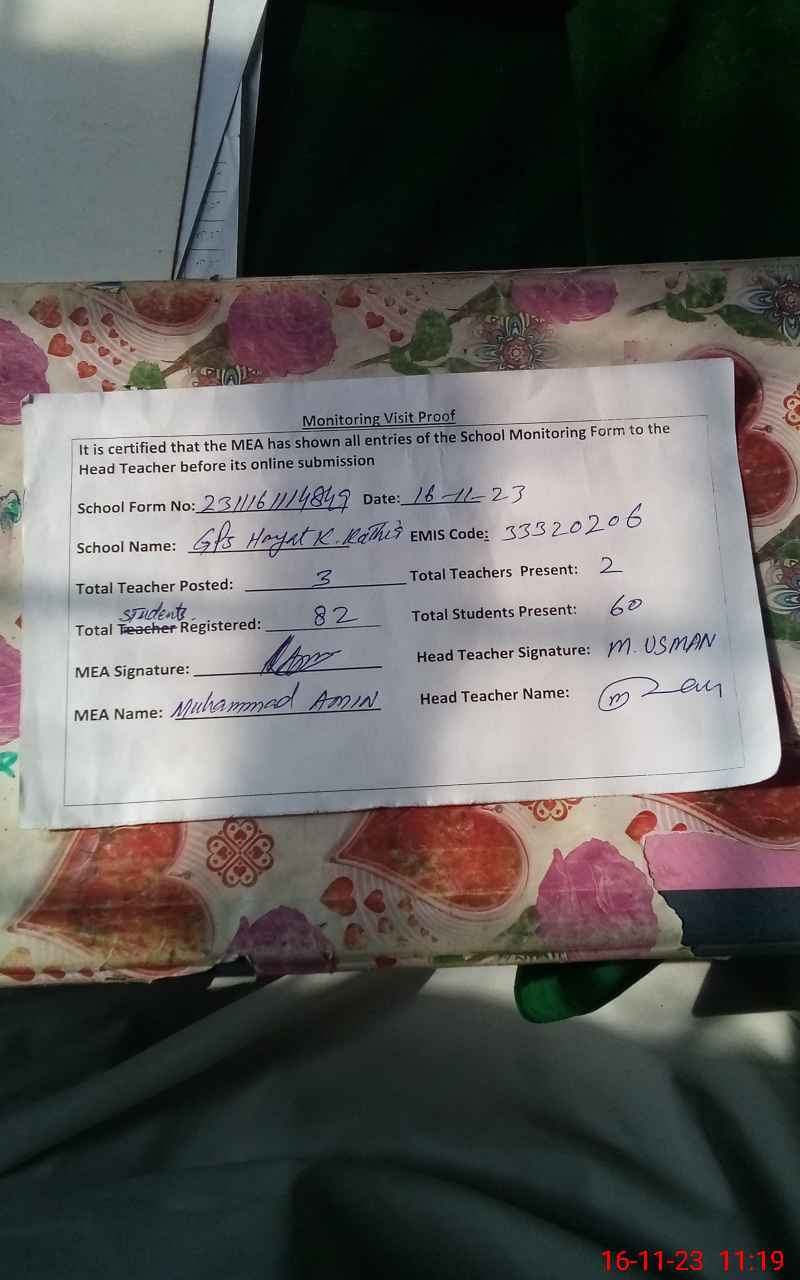 Monitoring Visit Proof
It is certified that the MEA has shown all entries of the School Monitoring Form to the
Head Teacher before its online submission
School Form No: 2311161114849 Date: 16-11-23
School Name: GPS Hayat K. EMIS Code: 33320206
Total Teacher Posted: 3 Total Teachers Present: 2
students
Total Teacher Registered: 82 Total Students Present: 60
MEA Signature: Head Teacher Signature: M. USMAN
MEA Name: Muhammad AMIN Head Teacher Name:
16-11-23 11:19